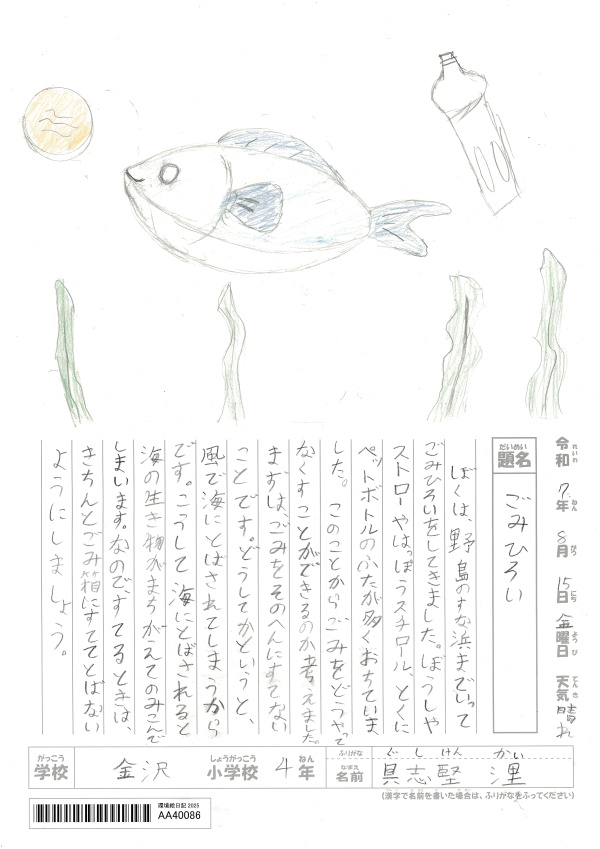 令和7年8月15日金曜日 天気晴れ
れいわ ねん がつ にち ようび てんき
だいめい
題名 ごみひろい
ぼくは、野島のすな浜までいって
ごみひろいをしてきました。ぼうしや
ストローやはっぽうスチロール、とくに
ペットボトルのふたが多くおちていま
した。このことからごみをどうやって
なくすことができるのか考えました。
まずは、ごみをそのへんにすてない
ことです。どうしてかというと、
風で海にとばされてしまうから
です。こうして海にとばされると
海の生き物がまちがえてのみこんで
しまいます。なのですてるときは、
きちんとごみ箱にすててとばない
ようにしましょう。
がっこう しょうがっこう ねん
学校 金沢 小学校 4年
ふりがな ぐしけん かい
なまえ
名前 具志堅 浬
(漢字で名前を書いた場合は、ふりがなをふってください)
環境絵日記 2025
AA40086